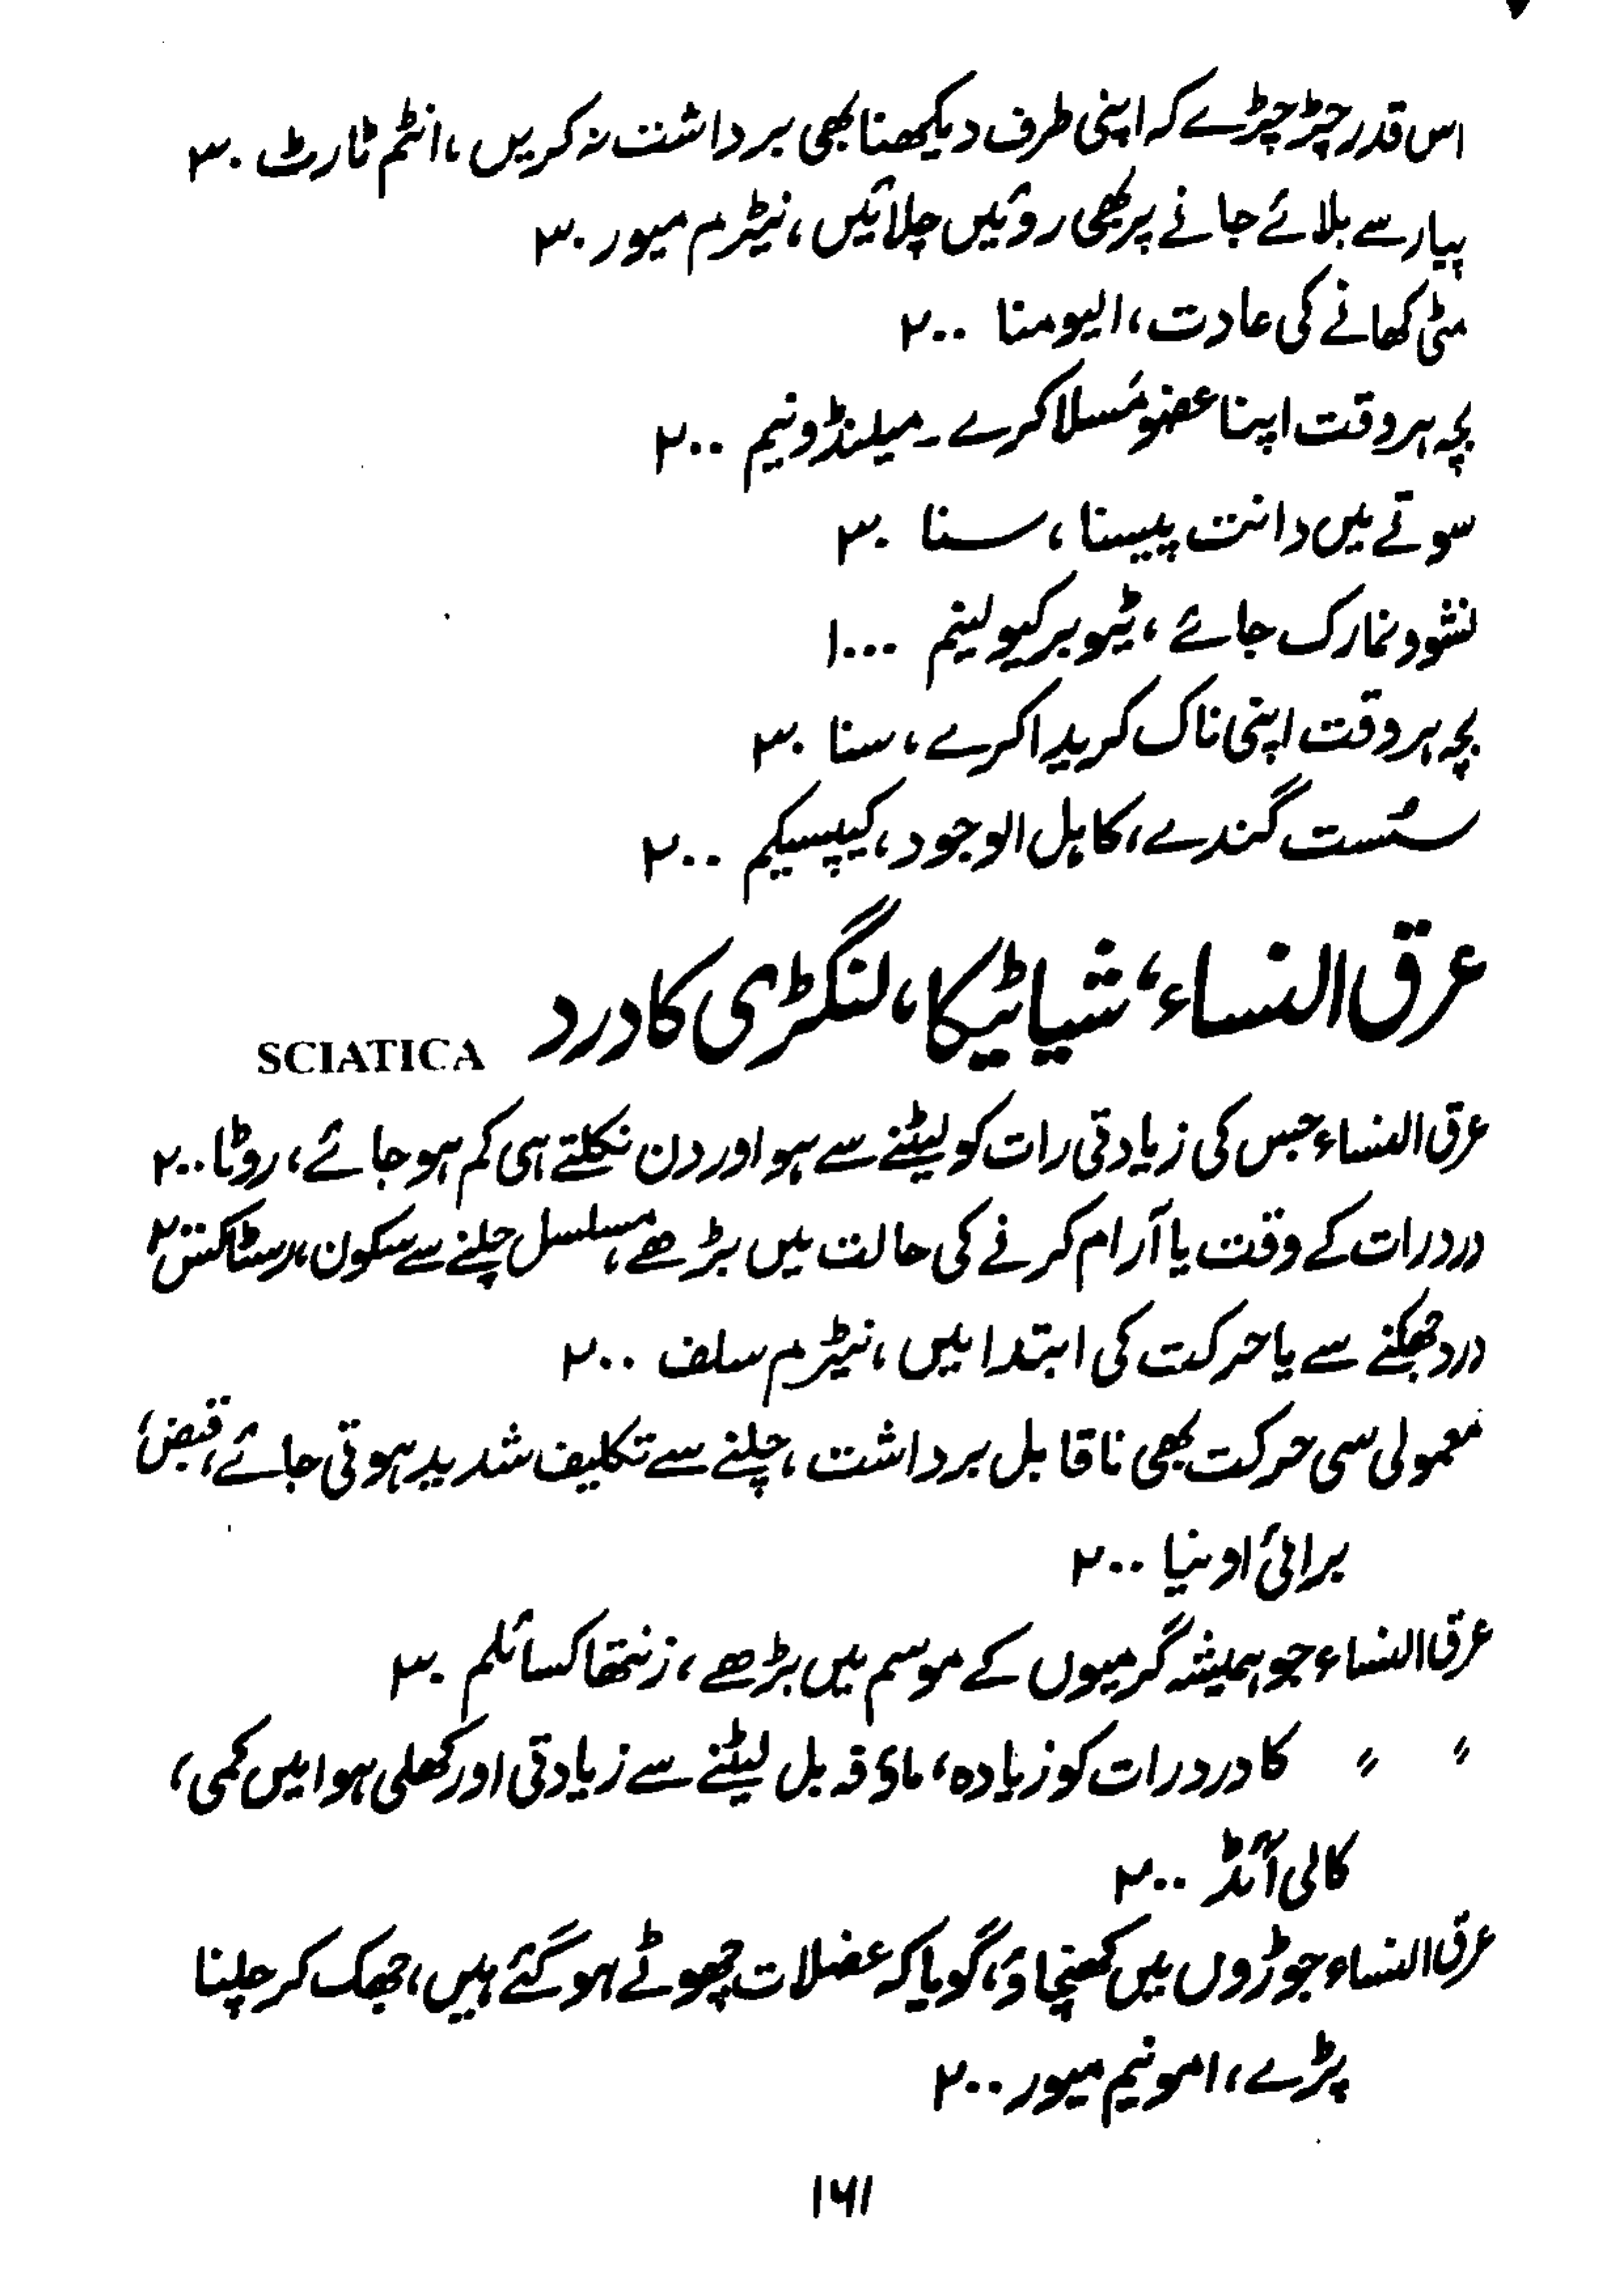 اس قدر چڑچڑے کہ اپنی طرف دیکھنا بھی برداشت نہ کریں، انٹم ٹارٹ ۳۰
پیار سے بلائے جانے پر بھی روئیں چلائیں، نیٹرم میور ۳۰
مٹی کھانے کی عادت، الیومنا ۲۰۰
بچہ ہر وقت اپنا عضو مَسلا کرے۔ میلنڈونیم ۲۰۰
سوتے میں دانت پیسنا، سنا ۳۰
نشوونما رک جائے، ٹیوبرکیولینم ۱۰۰۰
بچہ ہر وقت اپنی ناک کریدا کرے، سنا ۳۰
سُست گندے، کاہل الوجود، کیپسیکم ۲۰۰
عرق النساء، شیاٹیکا، لنگڑی کا درد SCIATICA
عرق النساء جس کی زیادتی رات کو لیٹنے سے ہو اور دن نکلتے ہی کم ہو جائے، روٹا ۲۰۰
درد رات کے وقت یا آرام کرنے کی حالت میں بڑھے، مسلسل چلنے سے سکون، رسٹاکس ۲۰۰
درد جھکنے سے یا حرکت کی ابتدا میں، نیٹرم سلف ۲۰۰
معمولی سی حرکت بھی ناقابل برداشت، چلنے سے تکلیف شدید ہوتی جائے، قبض،
برائی اونیا ۲۰۰
عرق النساء جو ہمیشہ گرمیوں کے موسم میں بڑھے، زنتھاکسائلم ۳۰
〃 〃 کا درد رات کو زیادہ، ماؤفہ بل لیٹنے سے زیادتی اور کھلی ہوا میں کمی،
کالی آئڈ ۲۰۰
عرق النساء جوڑوں میں کھنچاؤ، گویا کہ عضلات چھوٹے ہو گئے ہیں، جھک کر چلنا
پڑے، امونیم میور ۲۰۰
۱۶۱